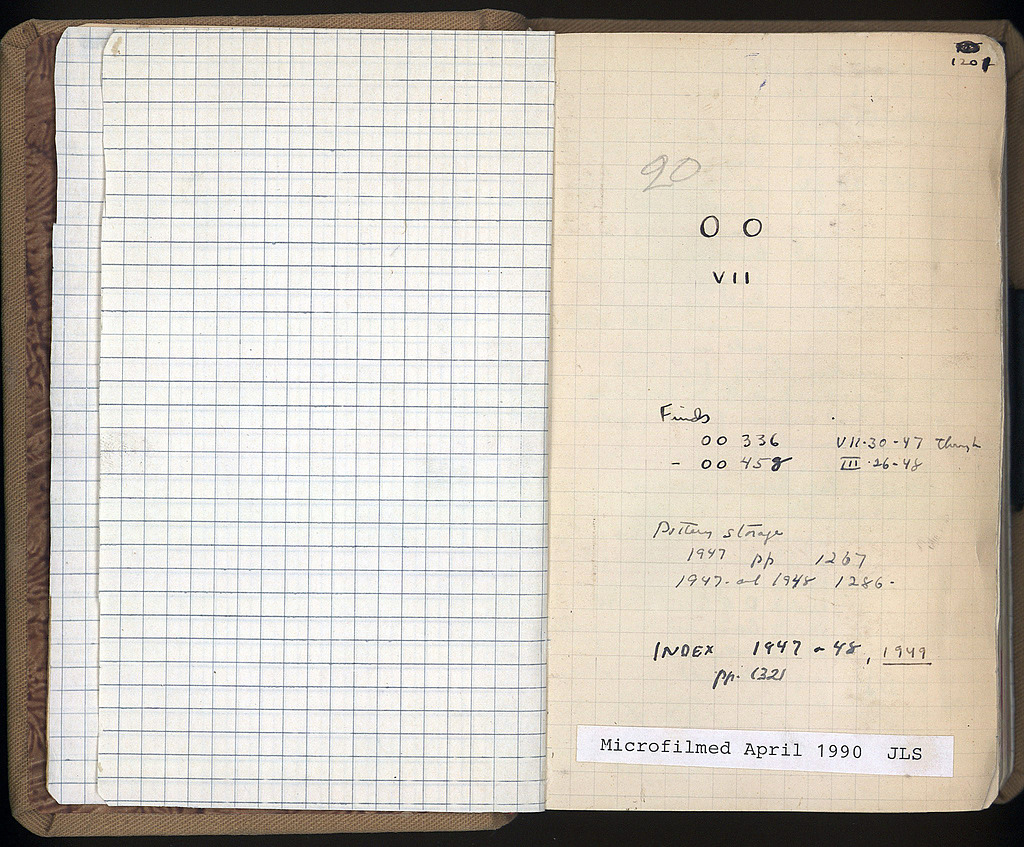 1201
20
OO
VII
Finds
OO 336 VII·30-47 through
- OO 458 III·26-48
Pottery storage
1947 pp 1267
1947- and 1948 1286-
INDEX 1947 - 48, 1949
pp. 1321
Microfilmed April 1990 JLS